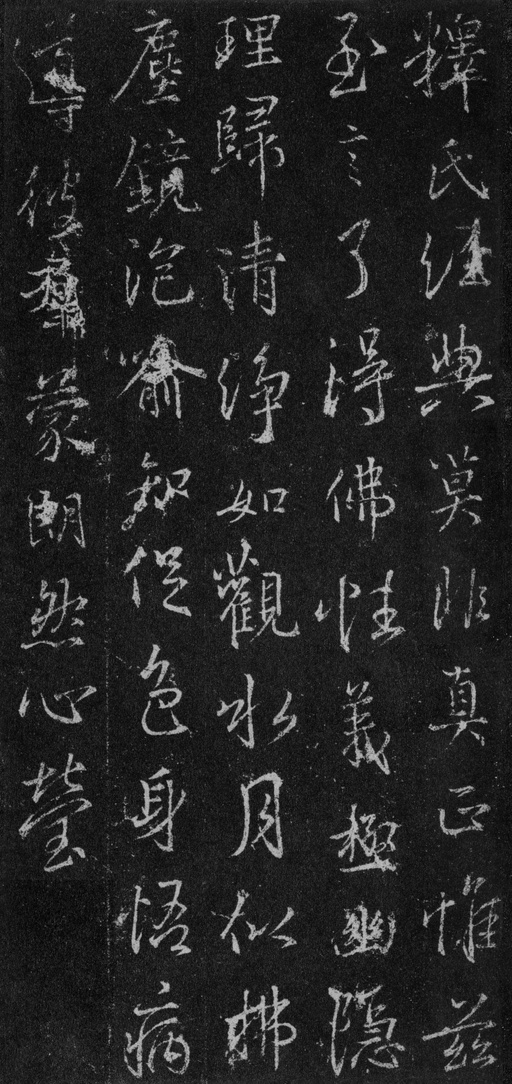 釋氏經典莫非真正惟茲
至言了得佛性義極幽隱
理歸清淨如觀水月似拂
塵鏡泡喻知促色身悟病
導彼群蒙朗然心瑩